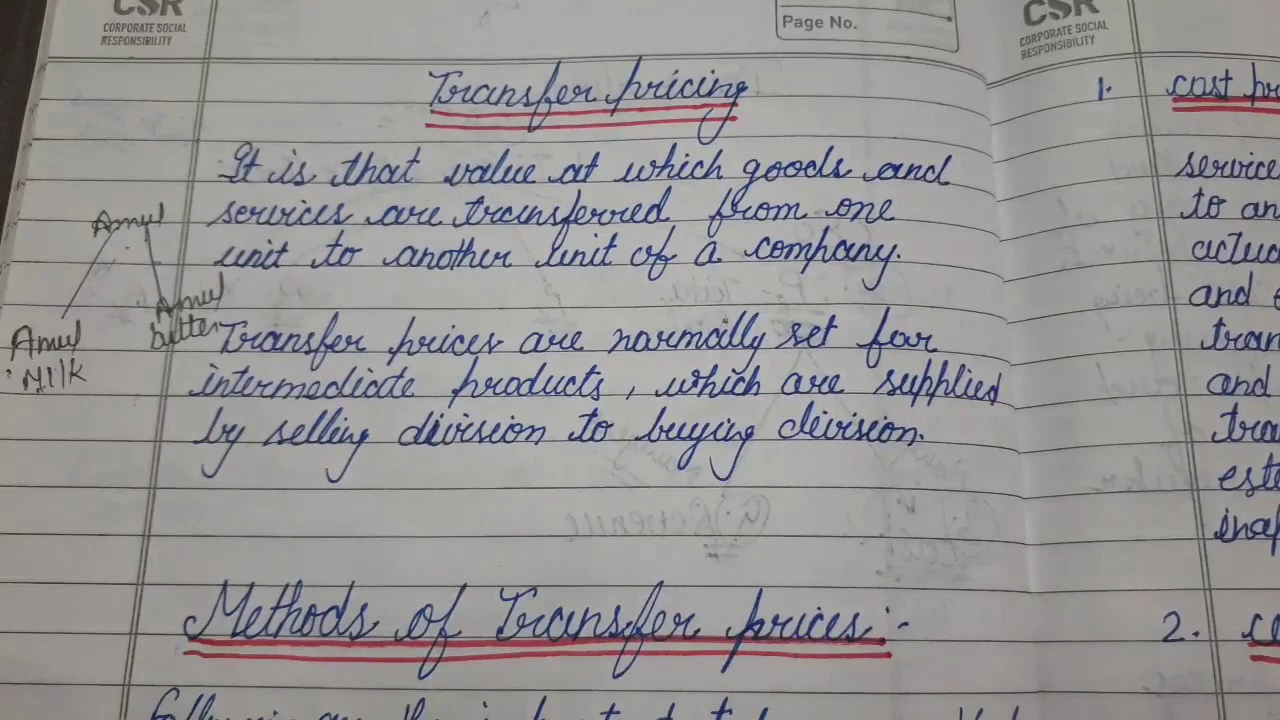 CSR
CORPORATE SOCIAL
RESPONSIBILITY
Page No.
Transfer pricing
It is that value at which goods and
services are transferred from one
unit to another unit of a company.
Amul
Amul
Milk
Amul
butter
Transfer prices are normally set for
intermediate products, which are supplied
by selling division to buying division.
Methods of Transfer prices:-
CSR
CORPORATE SOCIAL
RESPONSIBILITY
1. cost pr
service
to an
actua
and
tran
and
tra
este
2.